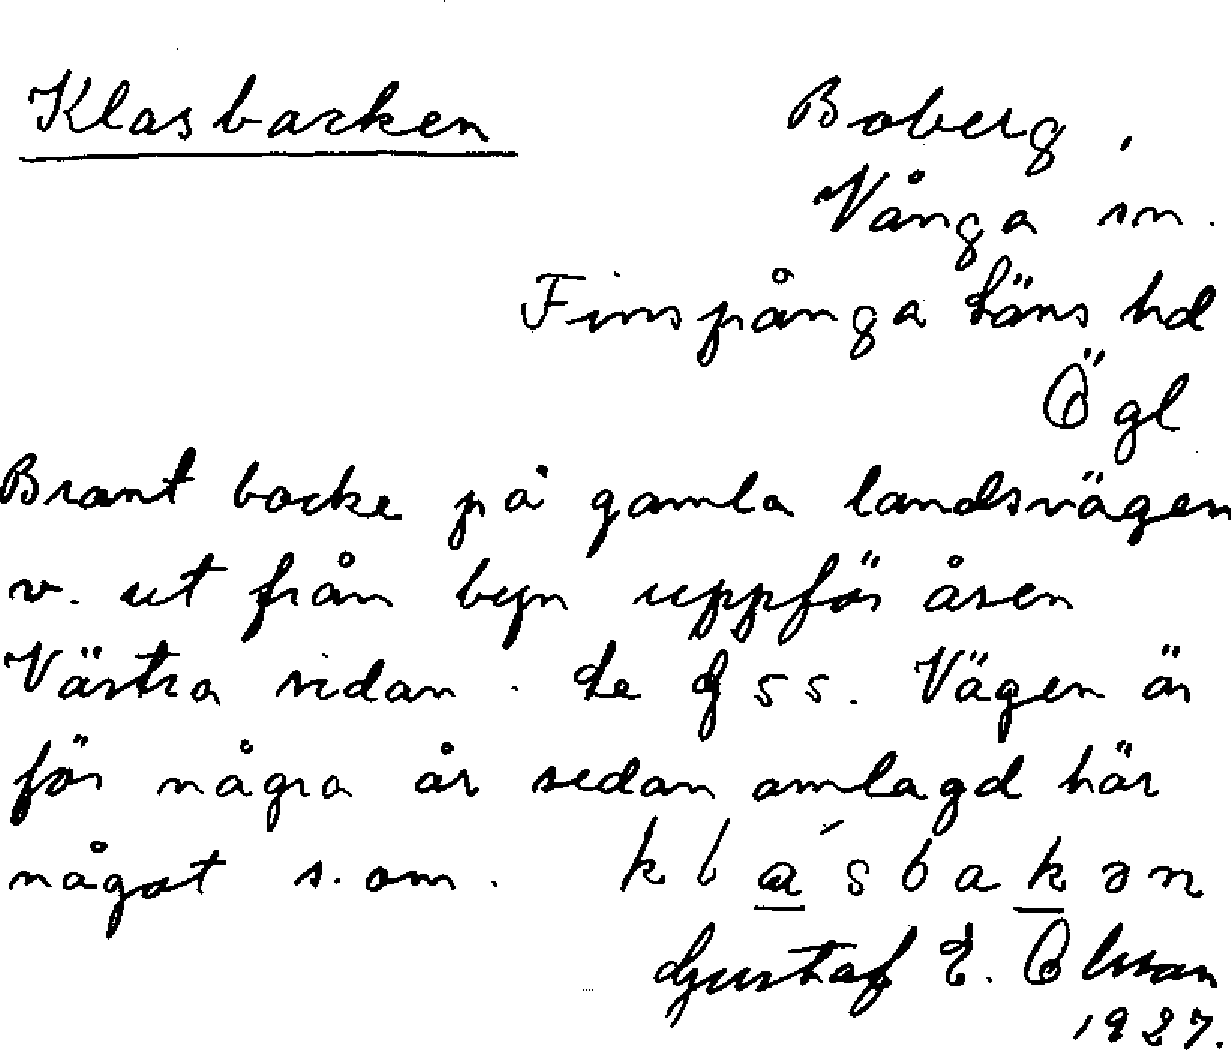 Klasbacken
Boberg,
Vånga sn.
Finspånga läns hd
Ögl
Brant backe på gamla landsvägen
v. ut från byn uppför åsen
Västra sidan. Le Gss. Vägen är
för några år sedan omlagd här
något s. om. klásbakən
Gustaf E. Olsson
1927.